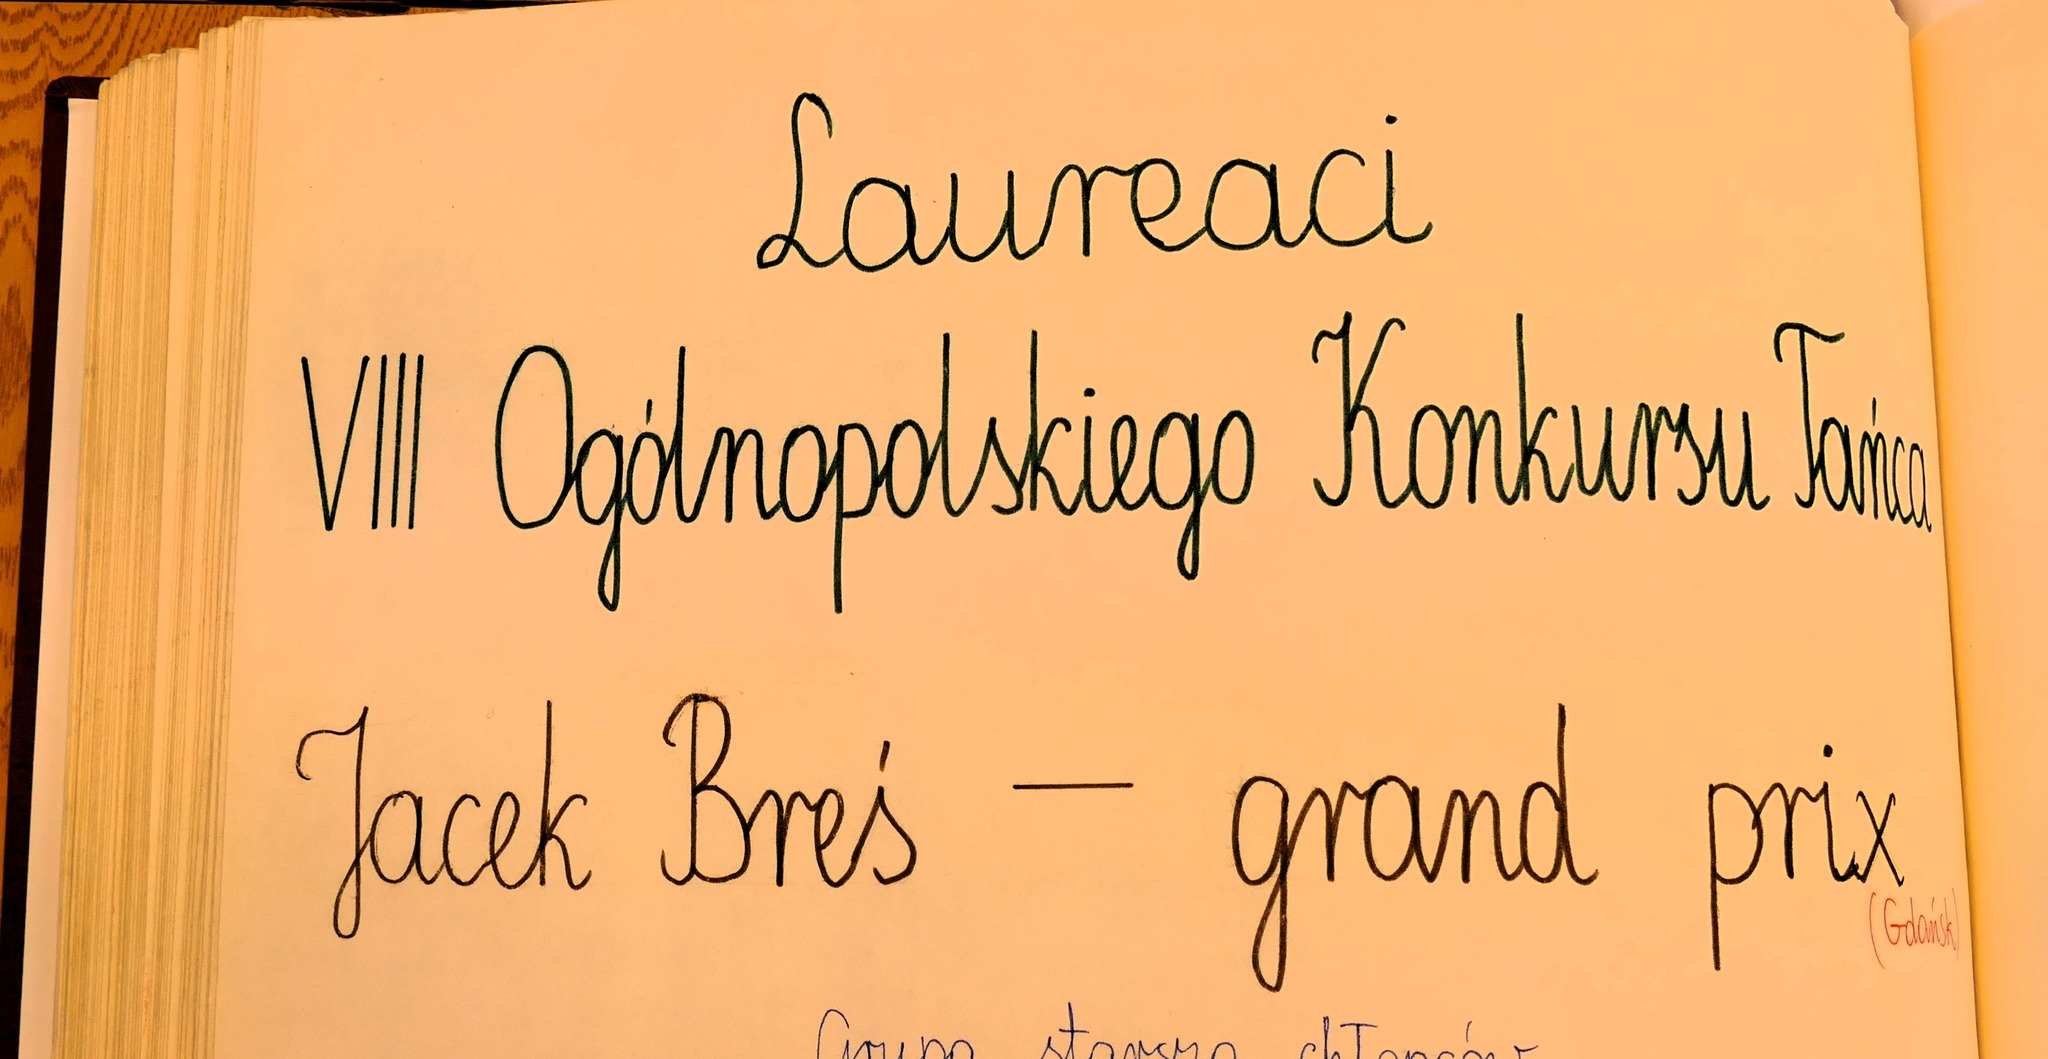 Laureaci
VIIII Ogólnopolskiego Konkursu Tańca
Jacek Breś — grand prix
(Gdańsk)
Grupa starsza chłopców